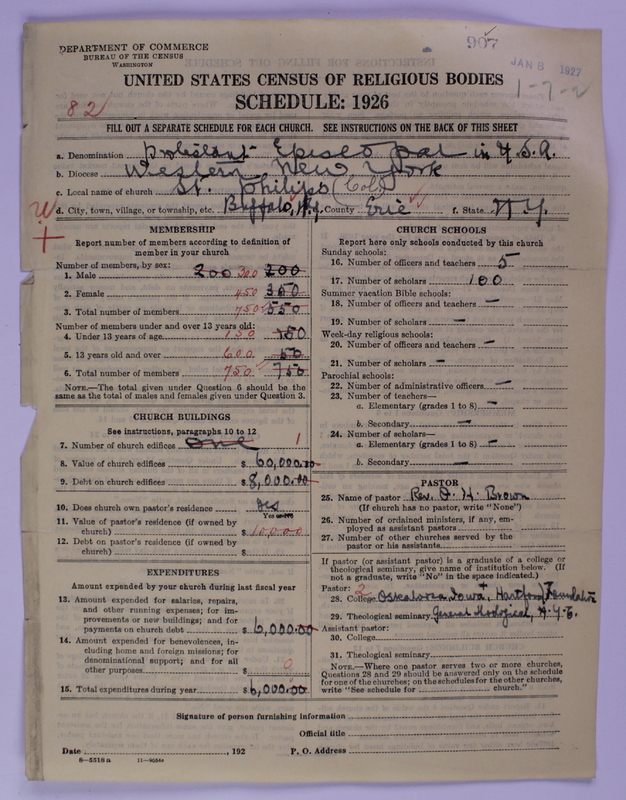 DEPARTMENT OF COMMERCE
BUREAU OF THE CENSUS
WASHINGTON
907
JAN 8 1927
1-7-2
UNITED STATES CENSUS OF RELIGIOUS BODIES
SCHEDULE: 1926
82
FILL OUT A SEPARATE SCHEDULE FOR EACH CHURCH. SEE INSTRUCTIONS ON THE BACK OF THIS SHEET
a. Denomination Protestant Episcopal in U.S.A.
b. Diocese Western New York
c. Local name of church St. Philips (Col)
d. City, town, village, or township, etc. Buffalo, N.Y. County Erie f. State N.Y.
MEMBERSHIP
Report number of members according to definition of
member in your church
Number of members, by sex:
1. Male 200 300 200
2. Female 450 350
3. Total number of members 750 550
Number of members under and over 13 years old:
4. Under 13 years of age 150 150
5. 13 years old and over 600 50
6. Total number of members 750 750
NOTE.—The total given under Question 6 should be the
same as the total of males and females given under Question 3.
CHURCH BUILDINGS
See instructions, paragraphs 10 to 12
7. Number of church edifices one 1
8. Value of church edifices $ 60,000.00
9. Debt on church edifices $ 8,000.00
10. Does church own pastor's residence yes
Yes or No
11. Value of pastor's residence (if owned by
church) $ 10000
12. Debt on pastor's residence (if owned by
church) $
EXPENDITURES
Amount expended by your church during last fiscal year
13. Amount expended for salaries, repairs,
and other running expenses; for im-
provements or new buildings; and for
payments on church debt $ 6,000.00
14. Amount expended for benevolences, in-
cluding home and foreign missions; for
denominational support; and for all
other purposes $
15. Total expenditures during year $ 6,000.00
CHURCH SCHOOLS
Report here only schools conducted by this church
Sunday schools:
16. Number of officers and teachers 5
17. Number of scholars 100
Summer vacation Bible schools:
18. Number of officers and teachers —
19. Number of scholars —
Week-day religious schools:
20. Number of officers and teachers —
21. Number of scholars —
Parochial schools:
22. Number of administrative officers —
23. Number of teachers—
a. Elementary (grades 1 to 8) —
b. Secondary —
24. Number of scholars—
a. Elementary (grades 1 to 8) —
b. Secondary —
PASTOR
25. Name of pastor Rev. O. H. Brown
(If church has no pastor, write "None")
26. Number of ordained ministers, if any, em-
ployed as assistant pastors
27. Number of other churches served by the
pastor or his assistants
If pastor (or assistant pastor) is a graduate of a college or
theological seminary, give name of institution below. (If
not a graduate, write "No" in the space indicated.)
Pastor: 2
28. College Oskaloosa Iowa, Hartford Foundation
29. Theological seminary General Theological, N.Y.C.
Assistant pastor:
30. College
31. Theological seminary
NOTE.—Where one pastor serves two or more churches,
Questions 28 and 29 should be answered only on the schedule
for one of the churches; on the schedules for the other churches,
write "See schedule for church."
Signature of person furnishing information
Official title
Date , 192 P. O. Address
8—5518a 11—9054